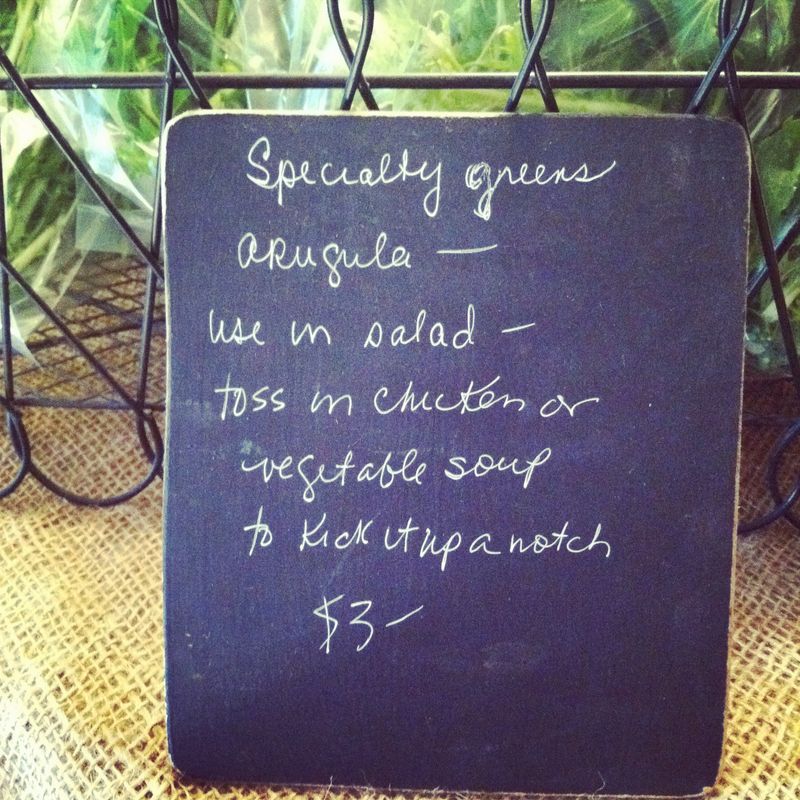 Specialty greens
ARugula —
use in salad –
toss in chicken or
vegetable soup
to kick it up a notch
$3 –